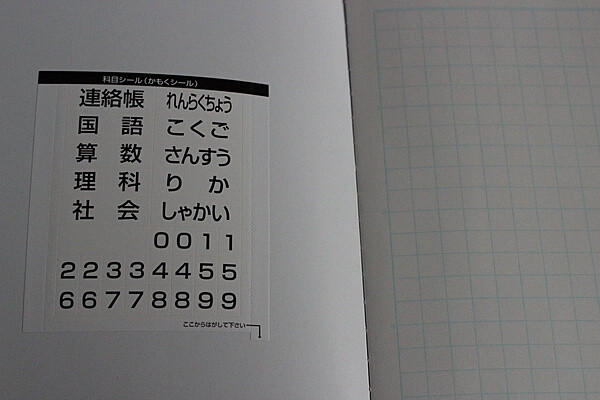 科目シール(かもくシール)
連絡帳 れんらくちょう
国 語 こくご
算 数 さんすう
理 科 り か
社 会 しゃかい
0 0 1 1
2 2 3 3 4 4 5 5
6 6 7 7 8 8 9 9
ここからはがして下さい